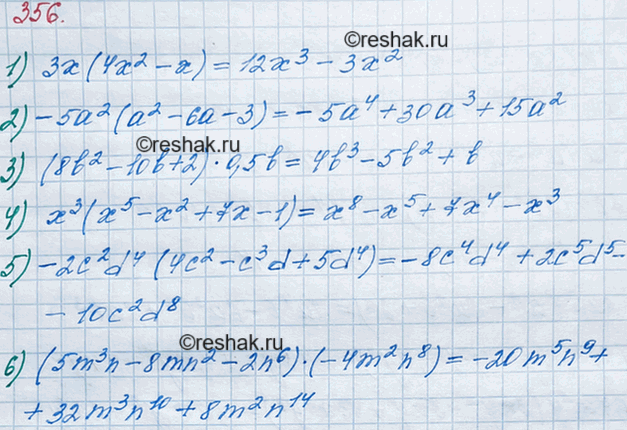 356.
©reshak.ru
1) 3x(4x² - x) = 12x³ - 3x²
2) -5a²(a² - 6a - 3) = -5a⁴ + 30a³ + 15a²
©reshak.ru
3) (8b² - 10b + 2) · 0,5b = 4b³ - 5b² + b
4) x³(x⁵ - x² + 7x - 1) = x⁸ - x⁵ + 7x⁴ - x³
5) -2c²d⁴(4c² - c³d + 5d⁴) = -8c⁴d⁴ + 2c⁵d⁵ -
- 10c²d⁸
©reshak.ru
6) (5m³n - 8mn² - 2n⁶) · (-4m²n⁸) = -20m⁵n⁹ +
+ 32m³n¹⁰ + 8m²n¹⁴
©reshak.ru